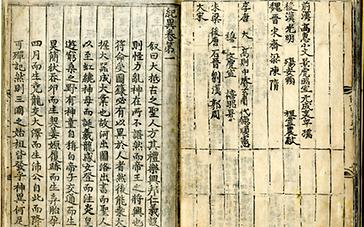 魏晉宋齊梁陳隋
李唐
朱梁後唐石晉劉漢郭周
大宋
紀異卷第一
叙曰大抵古之聖人方其禮樂興邦仁義設
則怪力亂神在所不語然而帝王之將興也
符命受圖籙必有以異於人者然後能乗大
握大器成大業也故河出圖洛出書而聖人
以至虹繞神母而誕羲龍感女登而注炎皇
遊窮桑之野有神童自稱白帝子交通而生
簡狄吞卵而生契姜嫄履跡而生弃胎孕
四月而生尭龍交大澤而生沛公自此而降
可殫記然則三國之始祖皆發乎神異何足